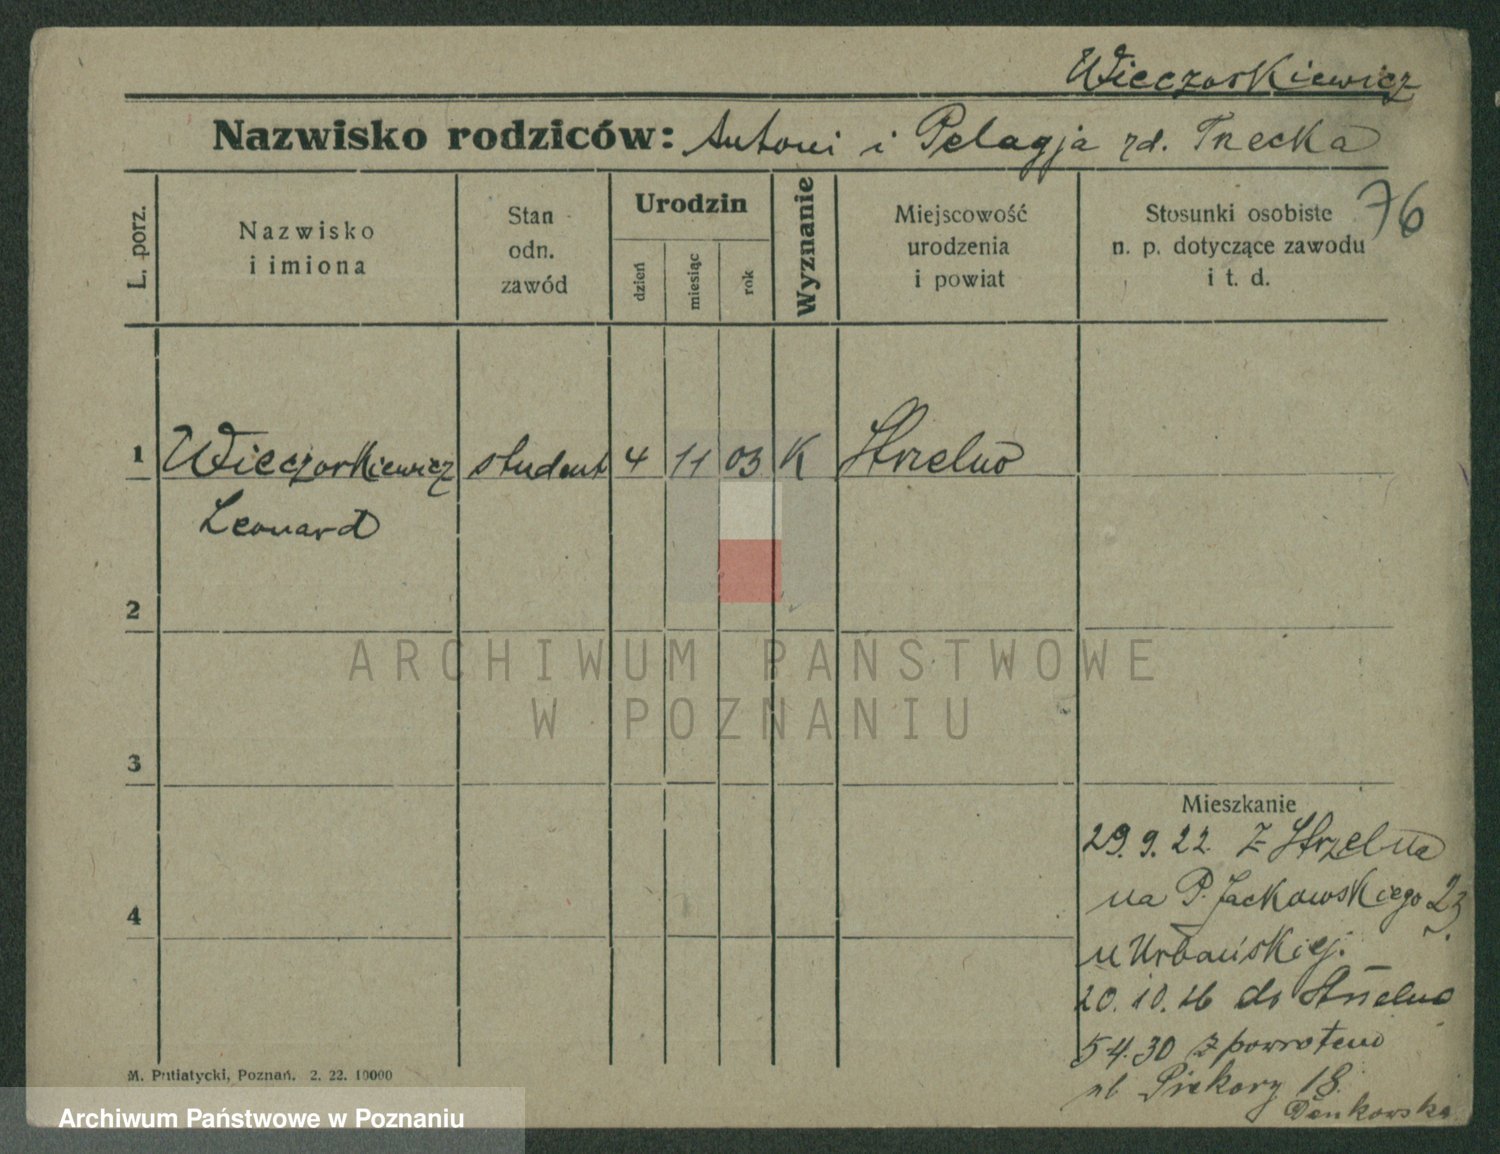 Wieczorkiewicz
Nazwisko rodziców: Antoni i Pelagja rd. Trecka
76
L. porz.
Nazwisko
i imiona
Stan
odn.
zawód
Urodzin
dzień
miesiąc
rok
Wyznanie
Miejscowość
urodzenia
i powiat
Stosunki osobiste
n. p. dotyczące zawodu
i t. d.
1 Wieczorkiewicz student 4 11 03 K Strzelno
Leonard
2
ARCHIWUM PAŃSTWOWE
W POZNANIU
3
Mieszkanie
29. 9. 22. z Strzelna
4
na P. Jackowskiego 23.
u Urbańskiej.
20. 10. 26 do Strzelna
5 4. 30 z powrotem
ul Piekary 18.
M. Putiatycki, Poznań. 2. 22. 10000
Archiwum Państwowe w Poznaniu